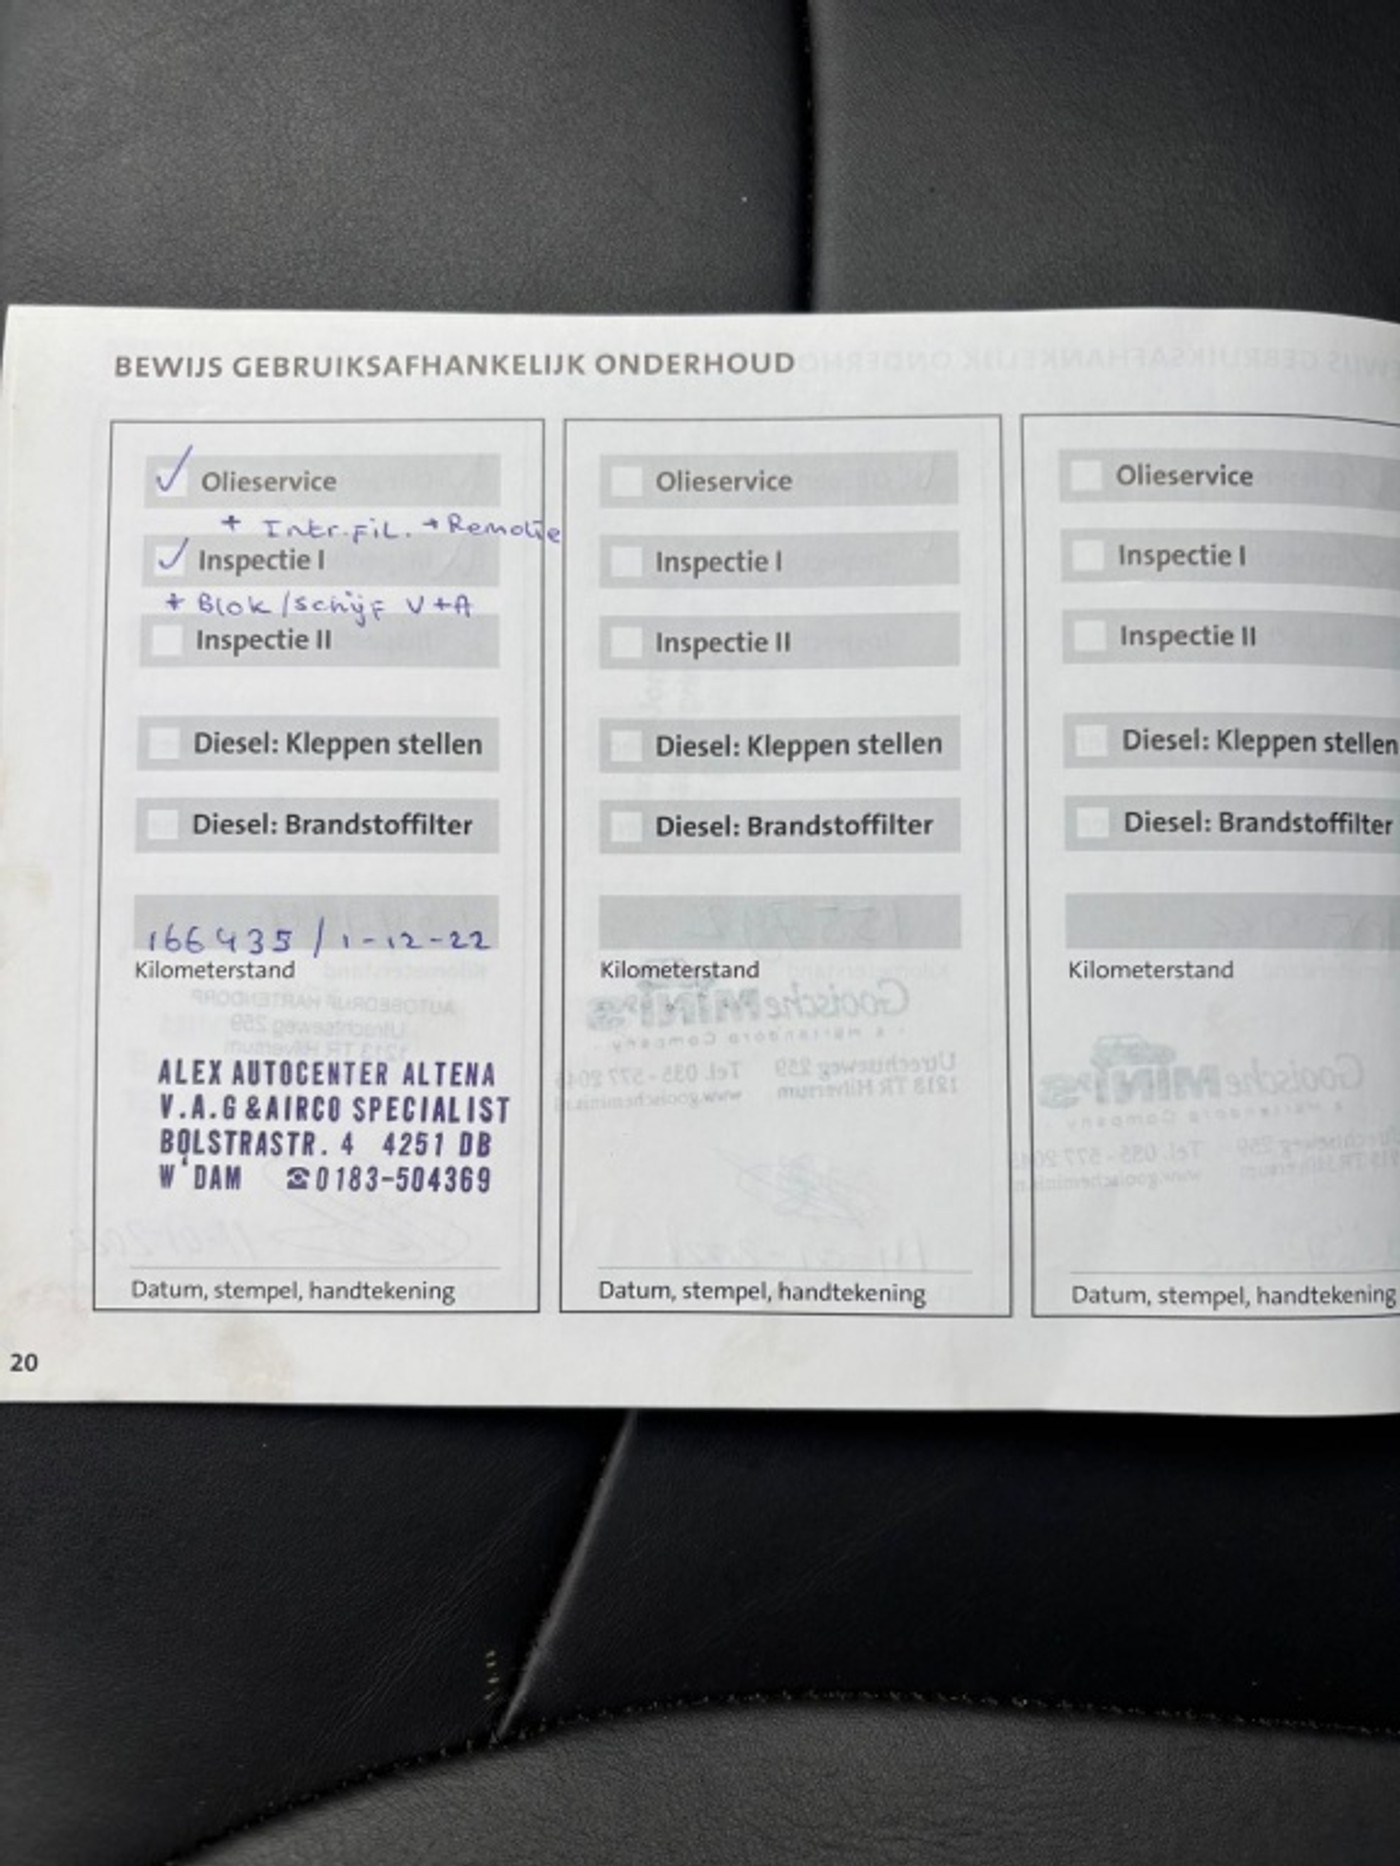 BEWIJS GEBRUIKSAFHANKELIJK ONDERHOUD
Olieservice
+ Intr.Fil. + Remolie
Inspectie I
+ Blok/schijf V+A
Inspectie II
Diesel: Kleppen stellen
Diesel: Brandstoffilter
166435 / 1-12-22
Kilometerstand
ALEX AUTOCENTER ALTENA
V.A.G & AIRCO SPECIALIST
BOLSTRASTR. 4 4251 DB
W'DAM ☎0183-504369
Datum, stempel, handtekening
Olieservice
Inspectie I
Inspectie II
Diesel: Kleppen stellen
Diesel: Brandstoffilter
Kilometerstand
Datum, stempel, handtekening
Olieservice
Inspectie I
Inspectie II
Diesel: Kleppen stellen
Diesel: Brandstoffilter
Kilometerstand
Datum, stempel, handtekening
20